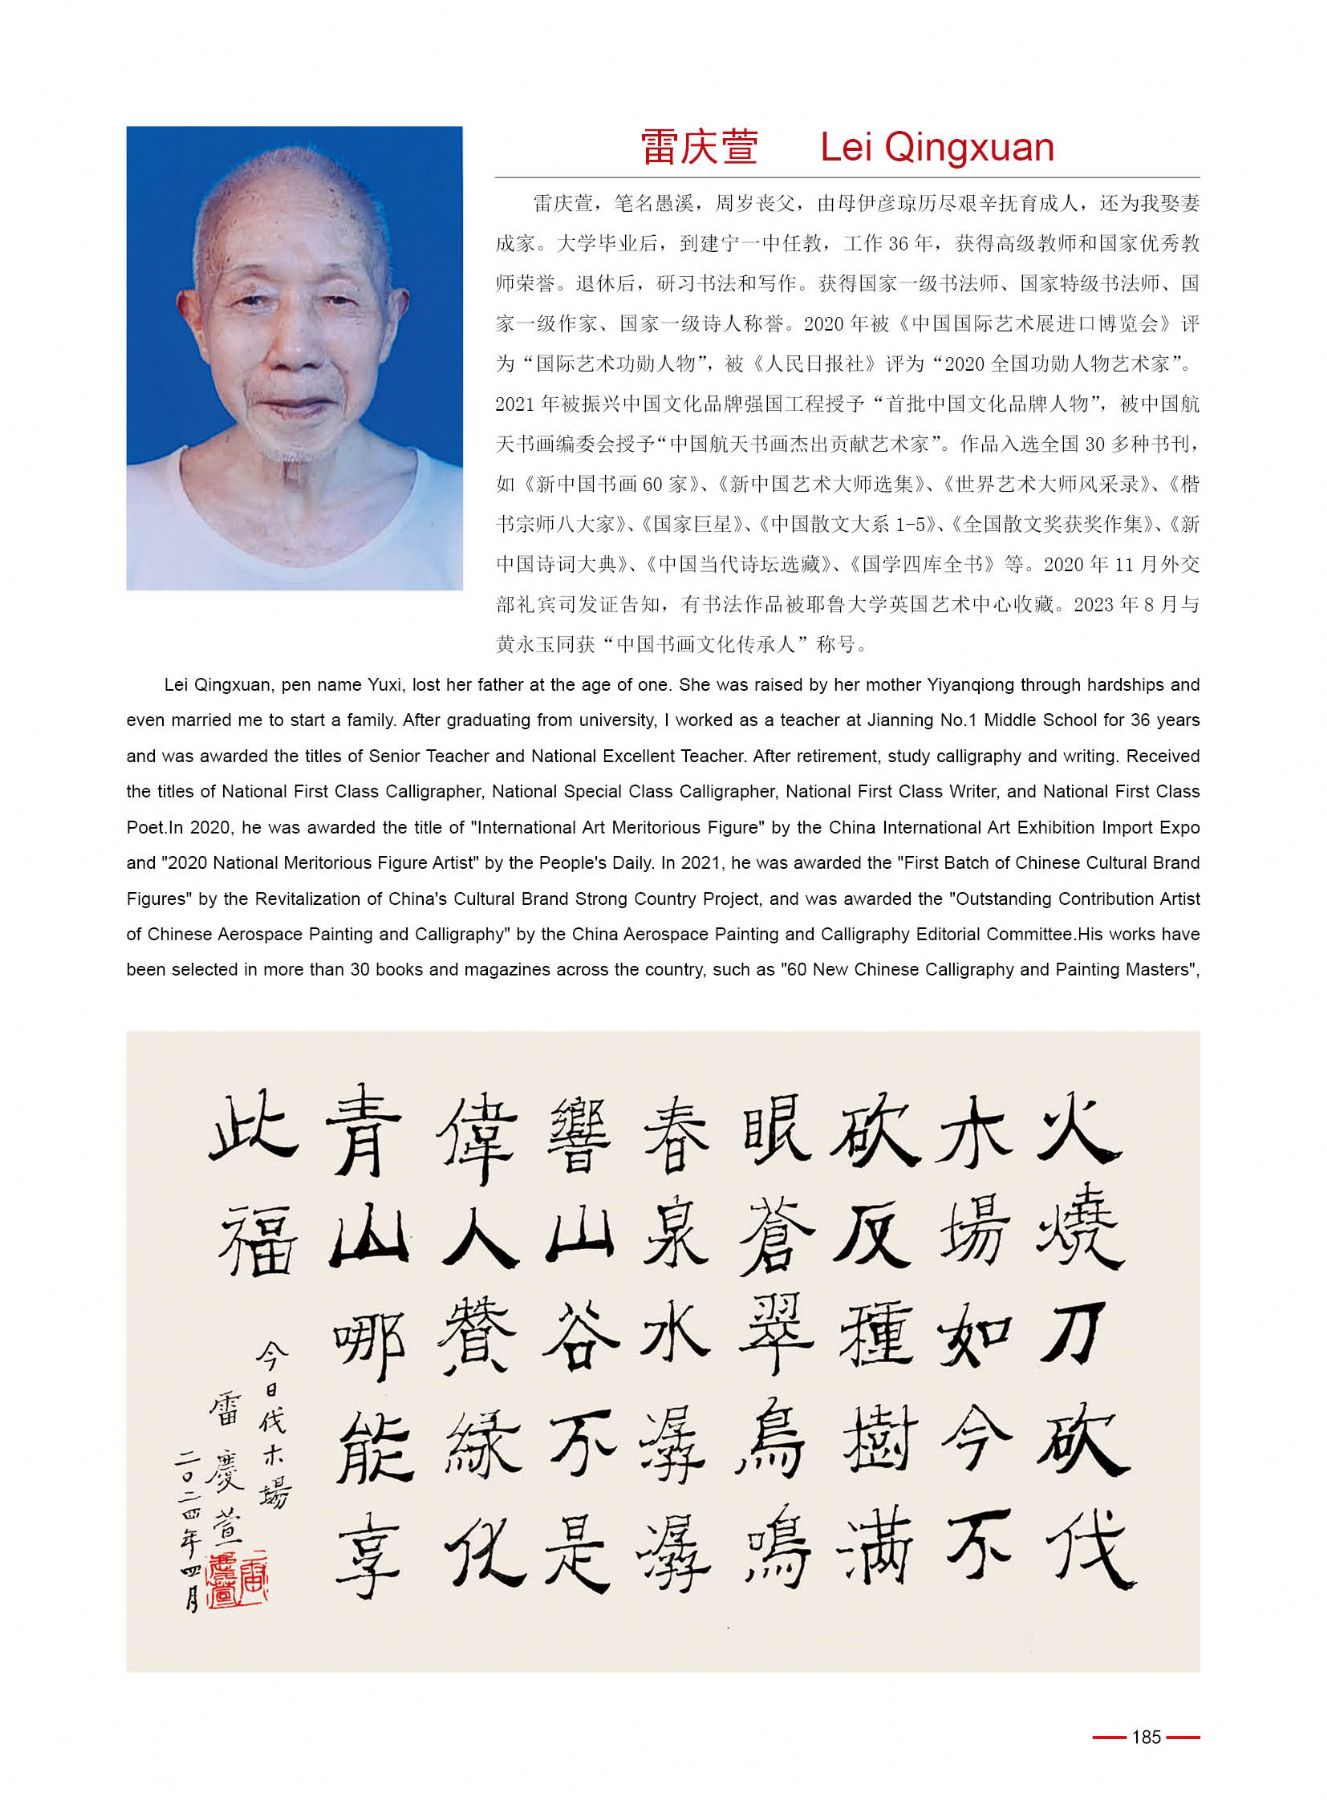 雷庆萱 Lei Qingxuan
雷庆萱，笔名愚溪，周岁丧父，由母伊彦琼历尽艰辛抚育成人，还为我娶妻
成家。大学毕业后，到建宁一中任教，工作 36 年，获得高级教师和国家优秀教
师荣誉。退休后，研习书法和写作。获得国家一级书法师、国家特级书法师、国
家一级作家、国家一级诗人称誉。2020 年被《中国国际艺术展进口博览会》评
为“国际艺术功勋人物”，被《人民日报社》评为“2020 全国功勋人物艺术家”。
2021 年被振兴中国文化品牌强国工程授予“首批中国文化品牌人物”，被中国航
天书画编委会授予“中国航天书画杰出贡献艺术家”。作品入选全国 30 多种书刊，
如《新中国书画 60 家》、《新中国艺术大师选集》、《世界艺术大师风采录》、《楷
书宗师八大家》、《国家巨星》、《中国散文大系 1-5》、《全国散文奖获奖作集》、《新
中国诗词大典》、《中国当代诗坛选藏》、《国学四库全书》等。2020 年 11 月外交
部礼宾司发证告知，有书法作品被耶鲁大学英国艺术中心收藏。2023 年 8 月与
黄永玉同获“中国书画文化传承人”称号。
Lei Qingxuan, pen name Yuxi, lost her father at the age of one. She was raised by her mother Yiyanqiong through hardships and
even married me to start a family. After graduating from university, I worked as a teacher at Jianning No.1 Middle School for 36 years
and was awarded the titles of Senior Teacher and National Excellent Teacher. After retirement, study calligraphy and writing. Received
the titles of National First Class Calligrapher, National Special Class Calligrapher, National First Class Writer, and National First Class
Poet.In 2020, he was awarded the title of "International Art Meritorious Figure" by the China International Art Exhibition Import Expo
and "2020 National Meritorious Figure Artist" by the People's Daily. In 2021, he was awarded the "First Batch of Chinese Cultural Brand
Figures" by the Revitalization of China's Cultural Brand Strong Country Project, and was awarded the "Outstanding Contribution Artist
of Chinese Aerospace Painting and Calligraphy" by the China Aerospace Painting and Calligraphy Editorial Committee.His works have
been selected in more than 30 books and magazines across the country, such as "60 New Chinese Calligraphy and Painting Masters",
火燒刀砍伐
木場如今不
砍反種樹满
眼蒼翠鳥鳴
春泉水潺潺
響山谷不是
偉人贊緑化
青山哪能享
此福
今日伐木場
雷慶萱
二〇二四年四月
雷慶萱
185